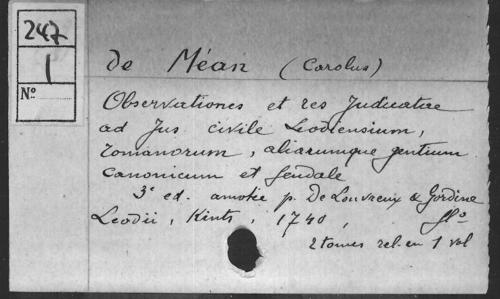 247
1
No
de Méan (Carolus)
Observationes et res Judicatae
ad Jus civile Leodiensium,
romanorum, aliarumque gentium
canonicum et feudale
3e ed. annotée p. De Louvreux & Gordine
Leodii, Kints, 1740, fo
2 tomes rel. en 1 vol